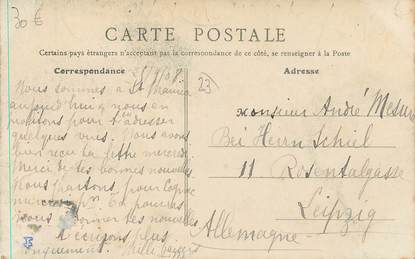 30 €
CARTE POSTALE
Certains pays étrangers n'acceptant pas la correspondance de ce côté, se renseigner à la Poste
Correspondance
Adresse
23
Nous sommes à St Maurice
aujourd'hui & nous en
profitons pour t'adresser
quelques vues. Nous avons
reçu ta lettre mercredi
Merci de tes bonnes nouvelles
Nous partons pour
pourras
nous donner tes nouvelles
t'écrirons plus
longuement. Mille
Monsieur André Mesure
Bei Herrn Schiel
11 Rosentalgasse
Leipzig
Allemagne